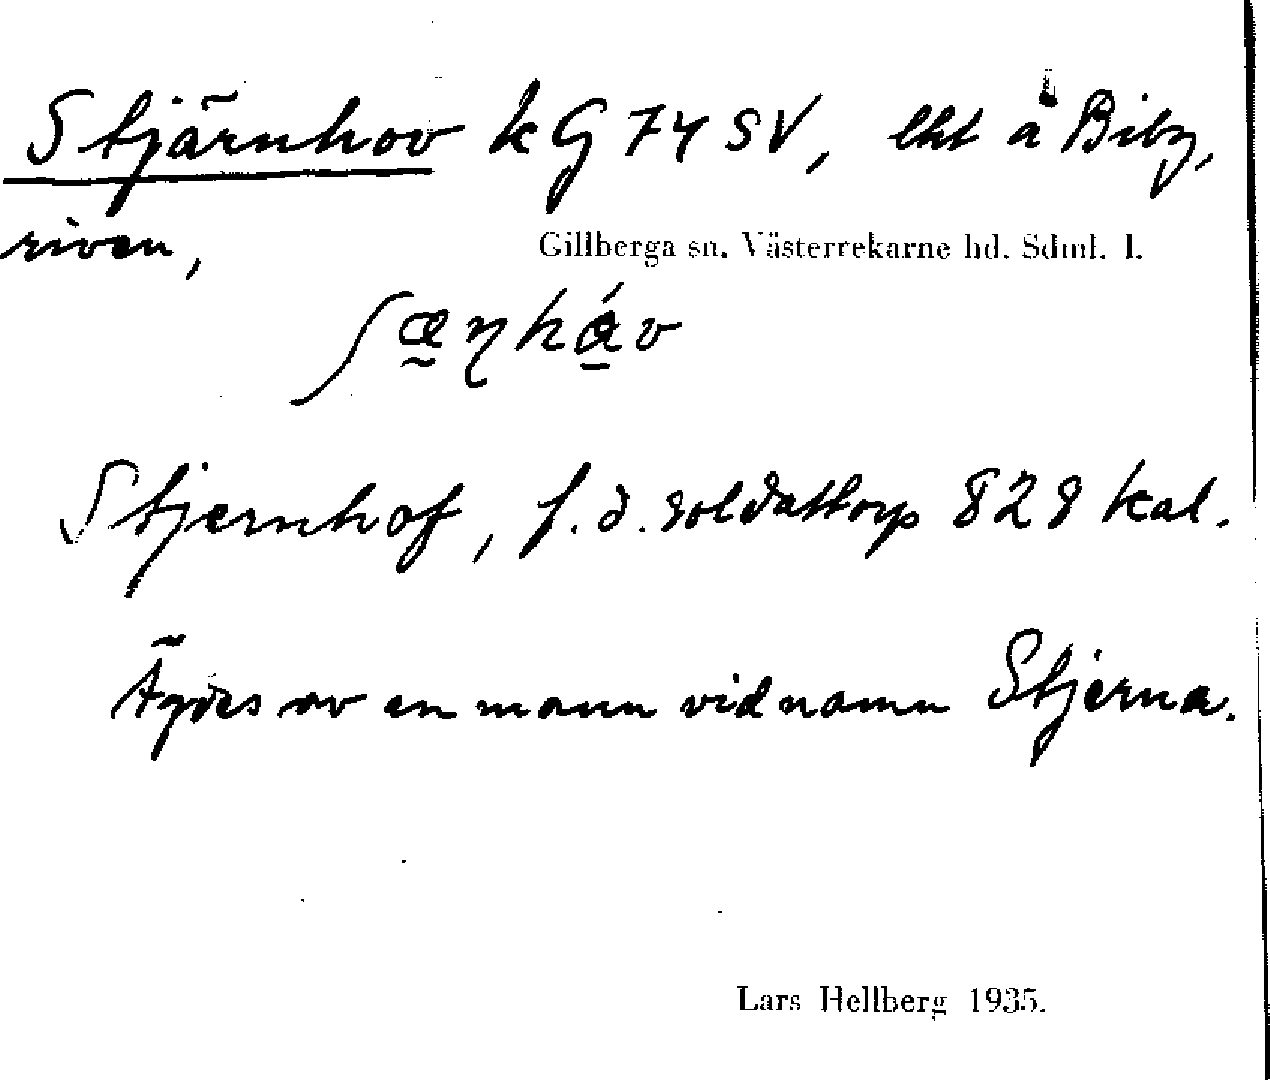 Stjärnhov kG 74 SV, lht å Biby,
riven,
Gillberga sn. Västerrekarne hd. Sdml. l.
Stjernhof, f.d. soldattorp 828 kal.
Ägdes av en mann vid namn Stjerna.
Lars Hellberg 1935.